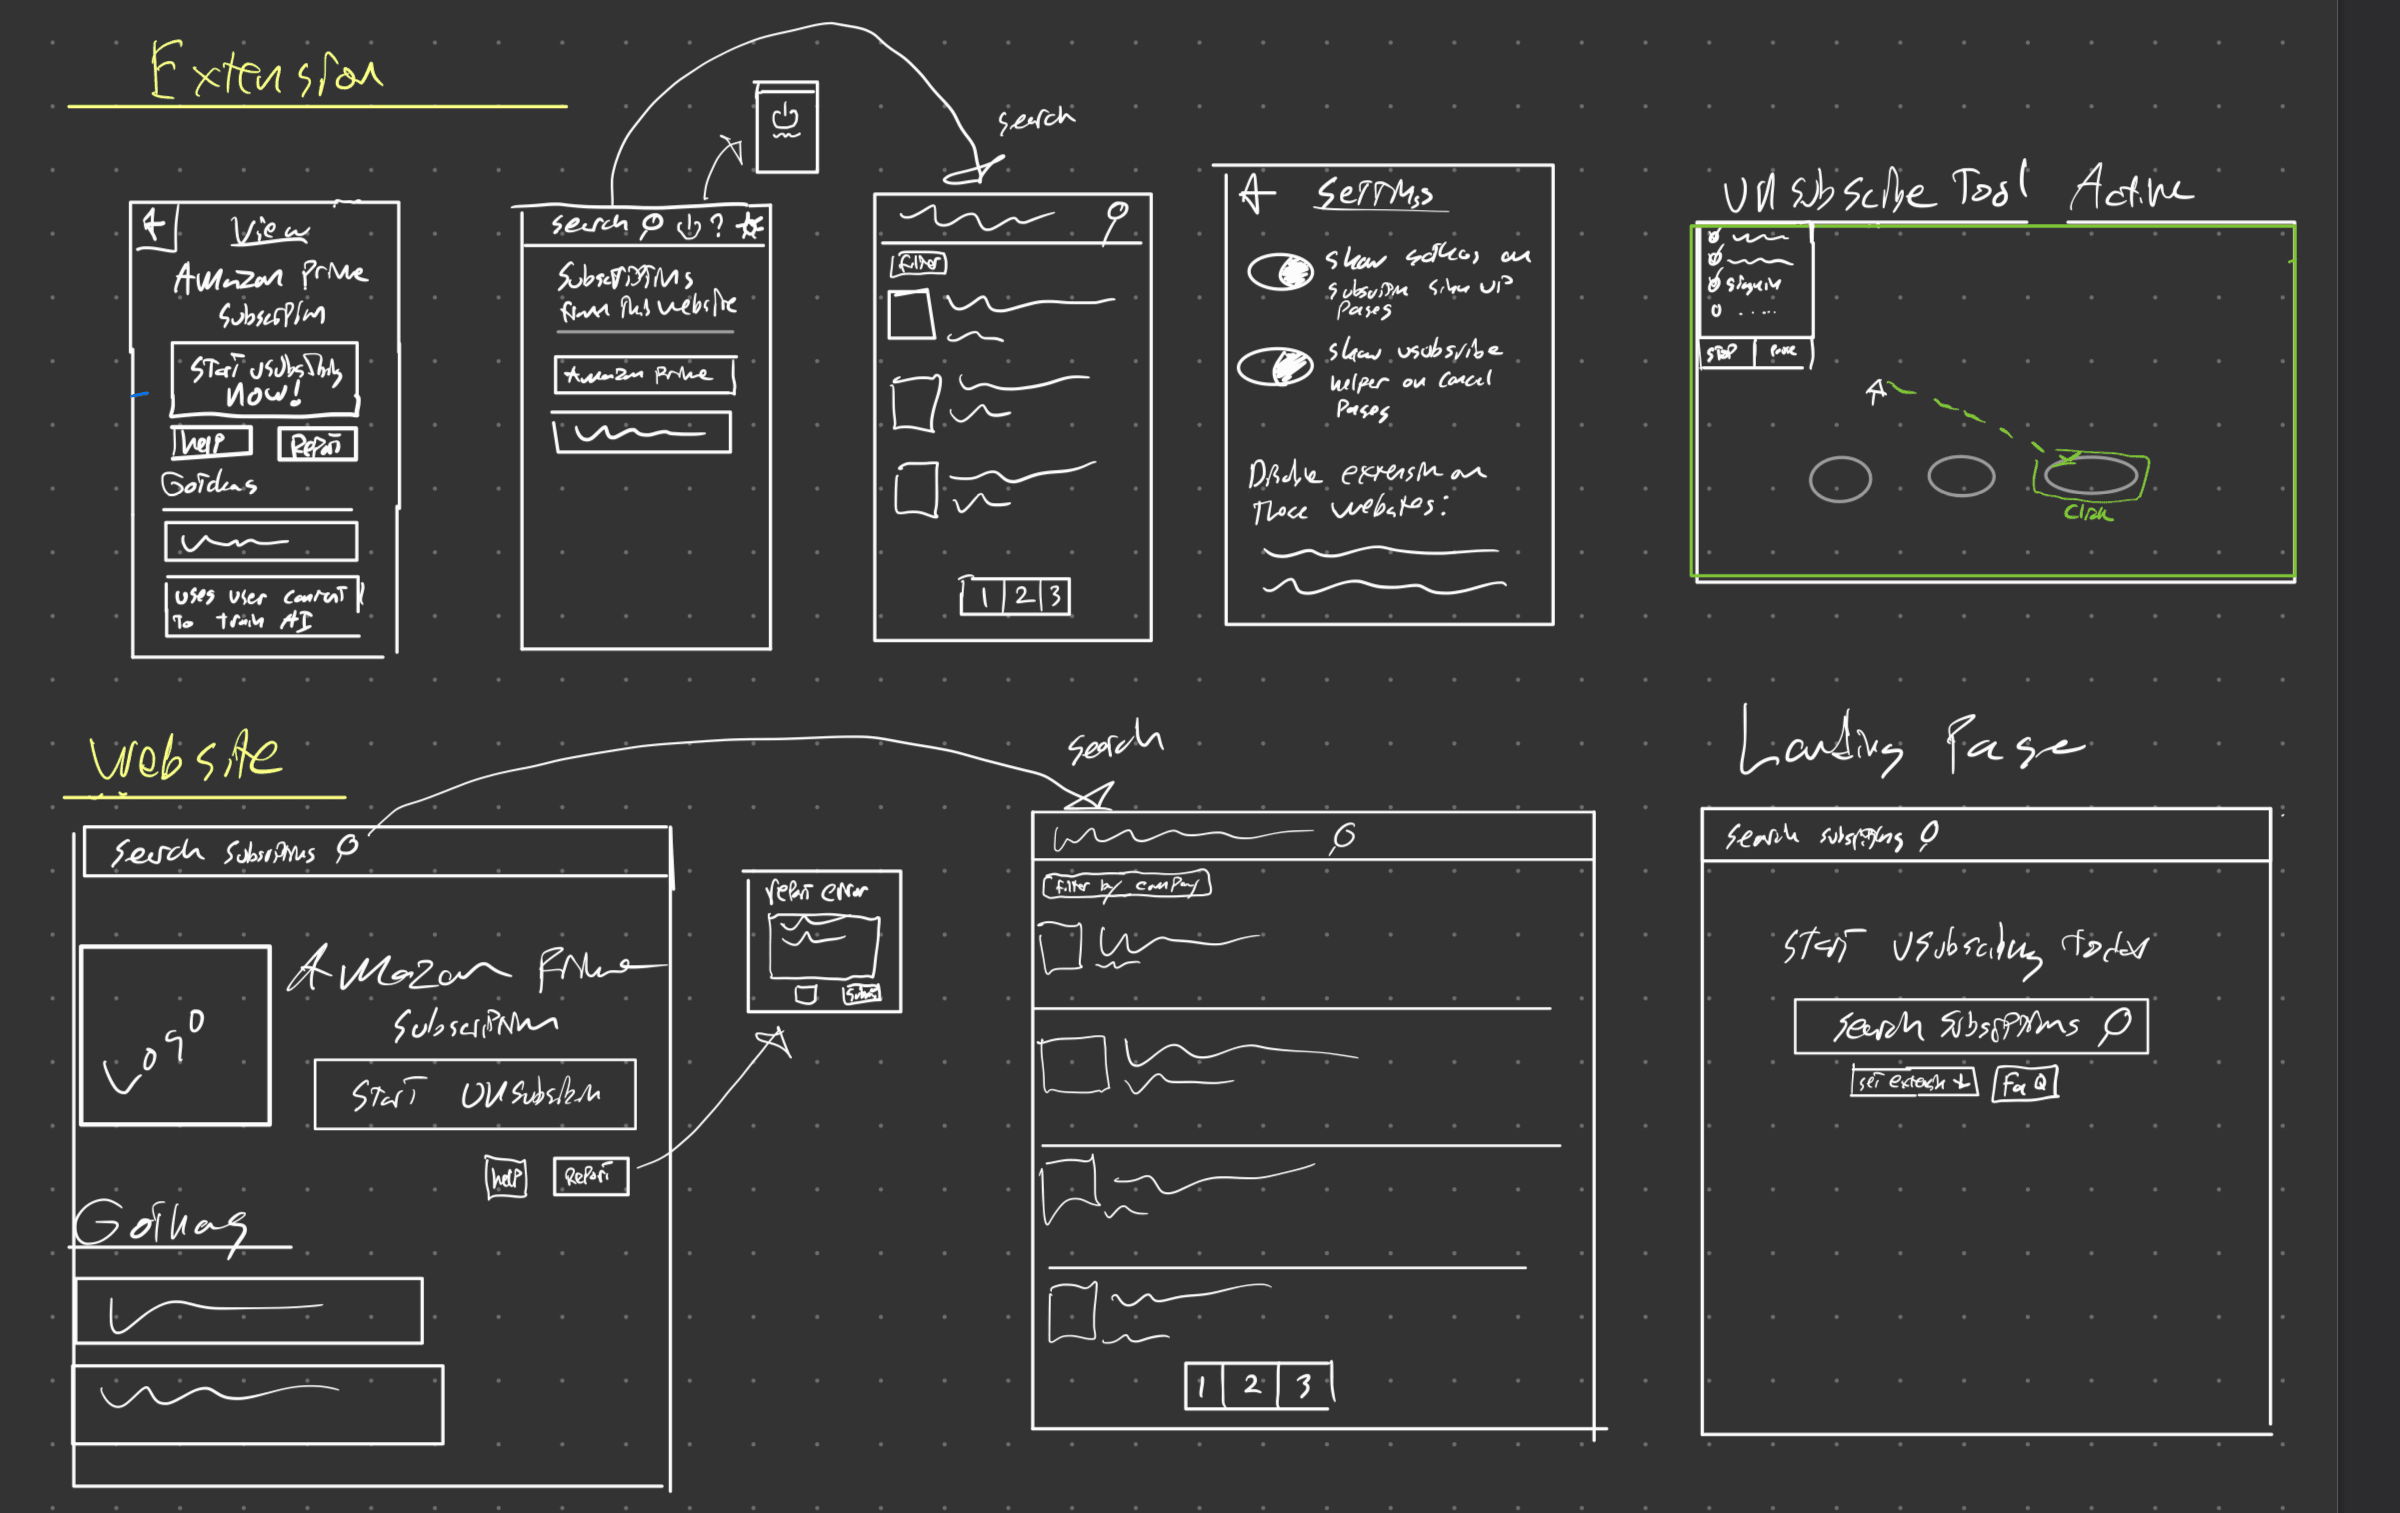 Extension
search
View
Amazon Prime
Subscription
START USUBSIBING
NOW!
help
Report
Gotchas
uses user content
to train AI
search ?
Subscriptions
from this website
Amazon Prime
Filter
1 2 3
Settings
show gotchas on
subscription sign up
pages
show usubsribe
helper on cancel
pages
Disable extension on
these websites:
Unsubscribe Tool Active
signin
STOP Pause
Click
Website
search
Search Subscriptions
Logo
Amazon Prime
Subscription
Start Unsubscribin
help
Report
Gotchas
report error
Submit
Filter by company
1 2 3
Landing Page
Search subscriptions
Start usubscribing today
Search Subscriptions
get extension
FaQ